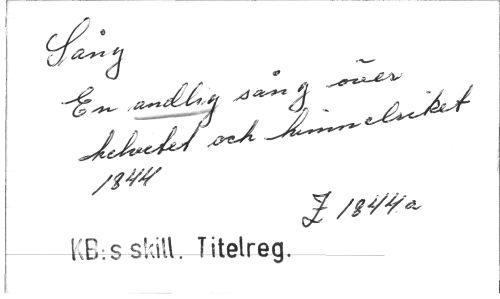 Sång
En andlig sång över
helvetet och himmelriket
1844
Z 1844a
KB:s skill. Titelreg.